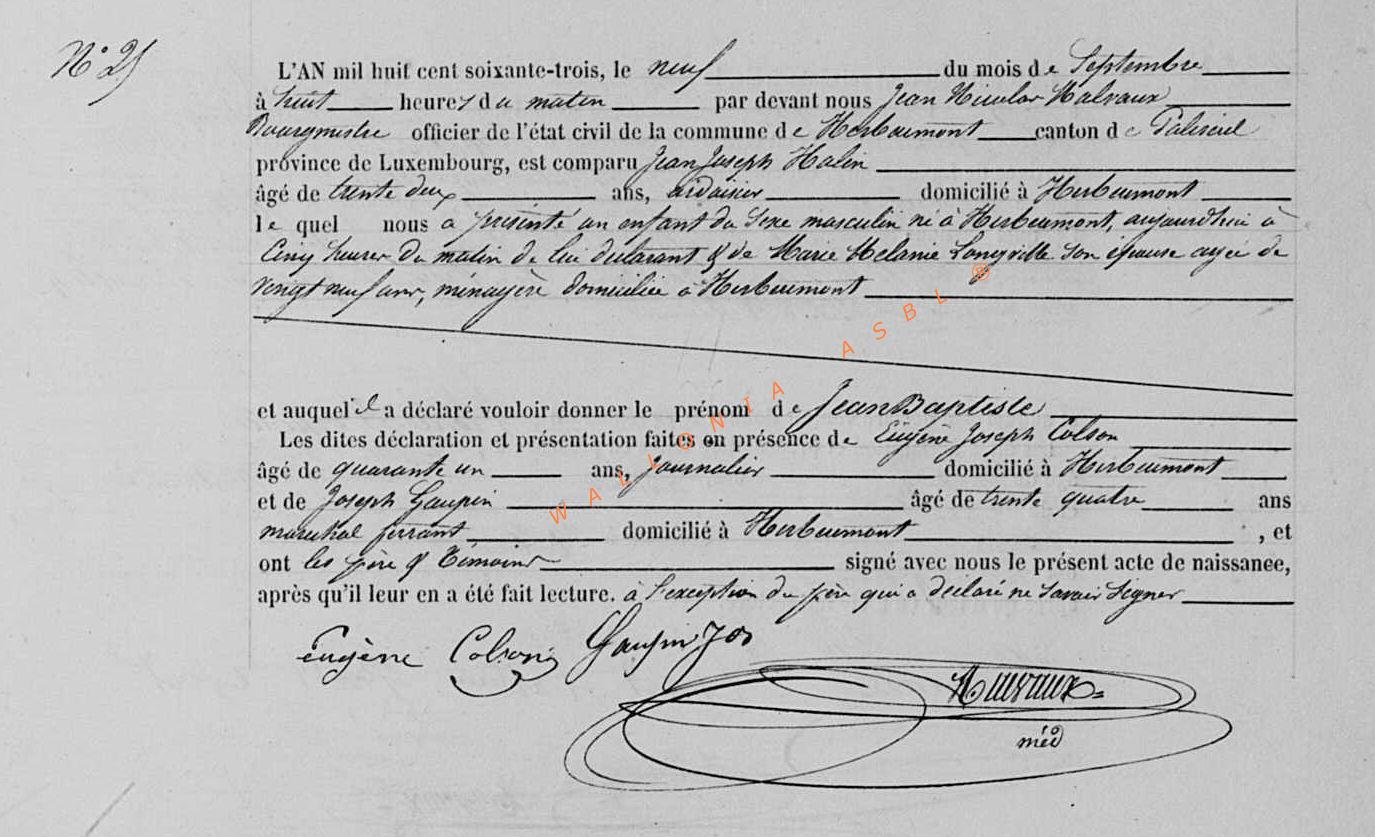 N° 25
L'AN mil huit cent soixante-trois, le neuf du mois de Septembre
à huit heures du matin par devant nous Jean Nicolas Malvaux
Bourgmestre officier de l'état civil de la commune de Herbeumont canton de Paliseul
province de Luxembourg, est comparu Jean Joseph Halin
âgé de trente deux ans, ardoisier domicilié à Herbeumont
le quel nous a présenté un enfant du Sexe masculin né à Herbeumont, aujourd'hui à
Cinq heures du matin de lui déclarant & de Marie Melanie Longville son épouse agée de
vingt neuf ans, ménagère domiciliée à Herbeumont
et auquel il a déclaré vouloir donner le prénom de Jean Baptiste
Les dites déclaration et présentation faites en présence de Eugène Joseph Colson
âgé de quarante un ans, journalier domicilié à Herbeumont
et de Joseph Gaupin âgé de trente quatre ans
maréchal ferrant domicilié à Herbeumont , et
ont les père & témoins signé avec nous le présent acte de naissance,
après qu'il leur en a été fait lecture. à l'exception du père qui a déclaré ne savoir signer
Eugène Colson Gaupin Jos
Malvaux
méd
WALLONIA ASBL ®